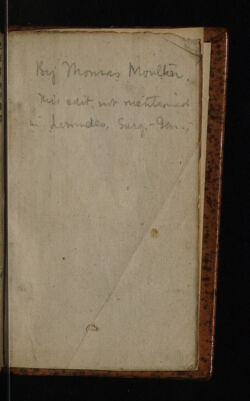 By Thomas Moulton.
This edit. not mentioned
in Lowndes, Surg.-Gen.,